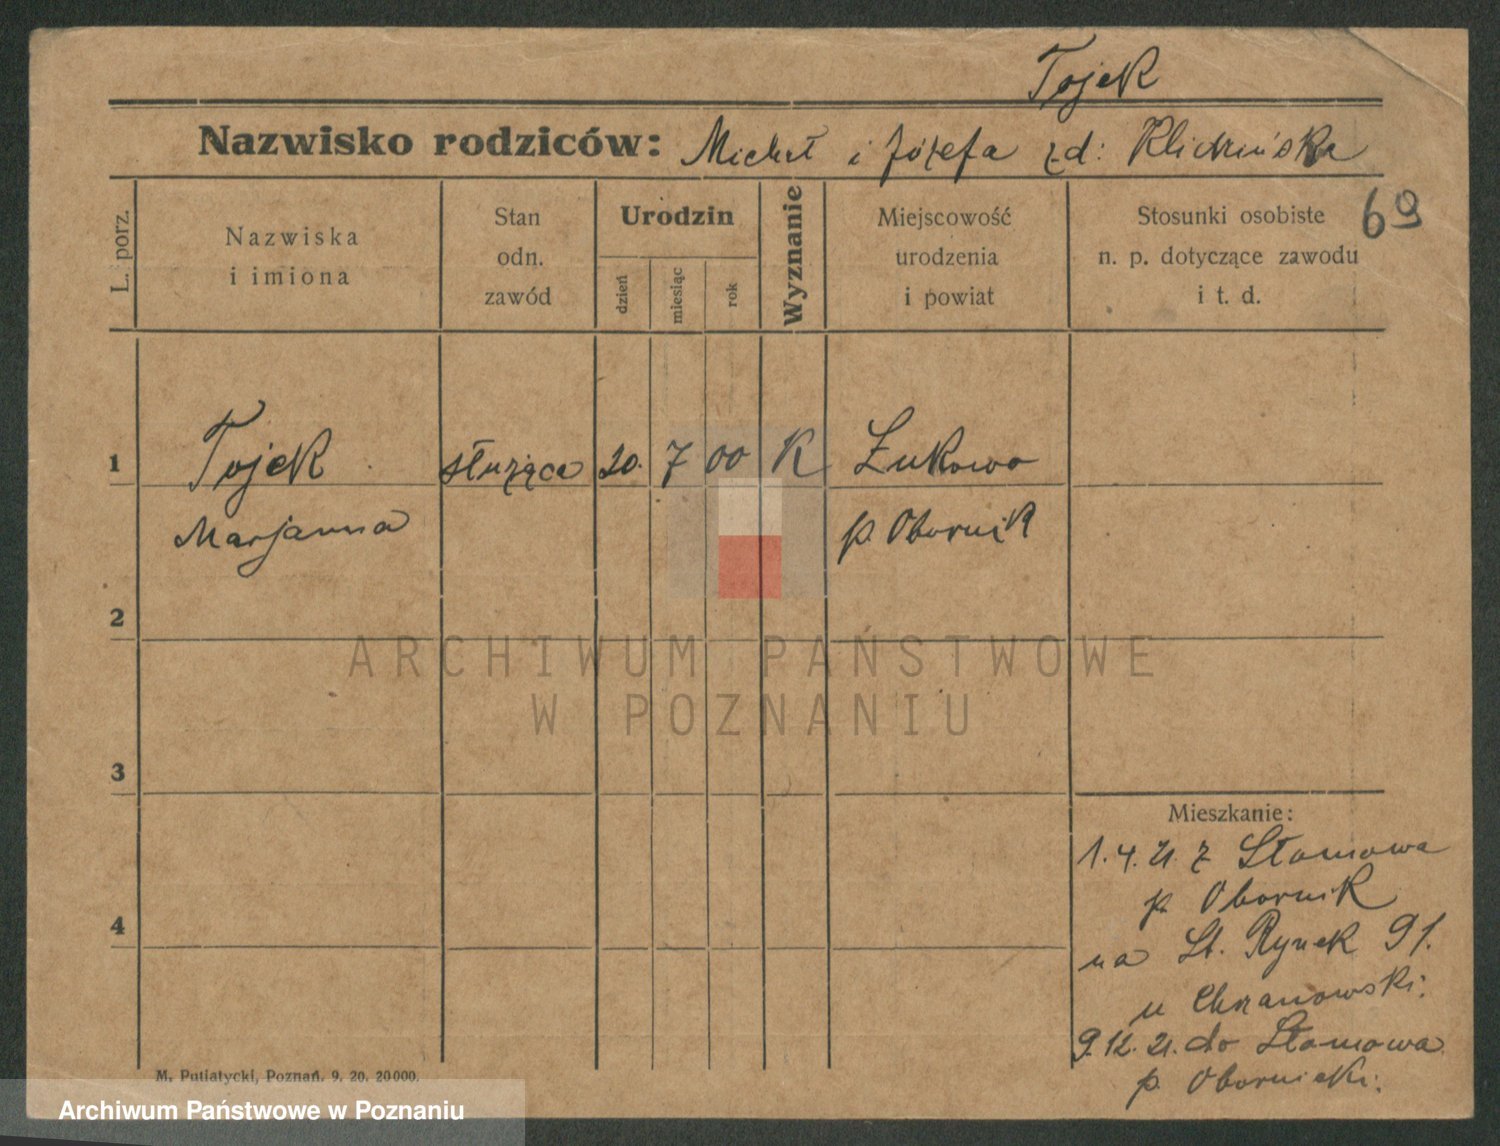 Tojek
Nazwisko rodziców: Michał i Józefa zd: Klichzińska
69
L. porz.
Nazwiska
i imiona
Stan
odn.
zawód
Urodzin
dzień
miesiąc
rok
Wyznanie
Miejscowość
urodzenia
i powiat
Stosunki osobiste
n. p. dotyczące zawodu
i t. d.
1 Tojek służąca 20. 7 00 K Żukowo
Marjanna p. Obornik
2
3
4
Mieszkanie:
1.4.21. z Słomowa
p. Obornik
na St. Rynek 91.
u Chrzanowski.
9.12.21. do Słomowa
p. Obornicki.
M. Putiatycki, Poznań. 9. 20. 20000.
ARCHIWUM PAŃSTWOWE
W POZNANIU
Archiwum Państwowe w Poznaniu